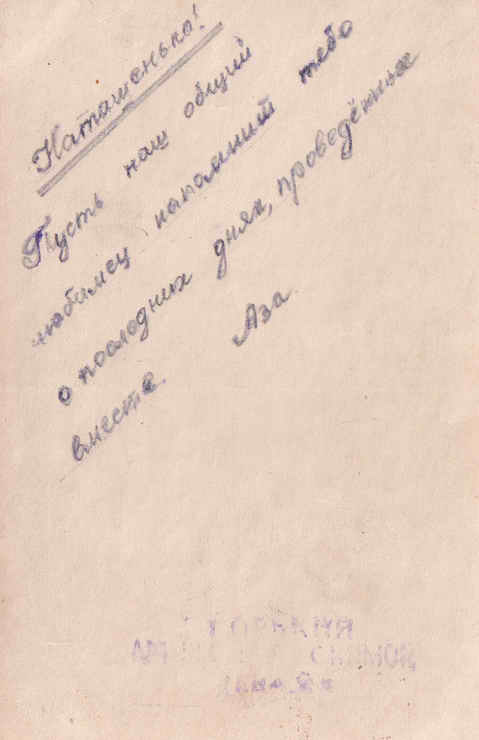 Наташенька!
Пусть наш общий
любимец напомнит тебе
о последних днях, проведённых
вместе. Аза